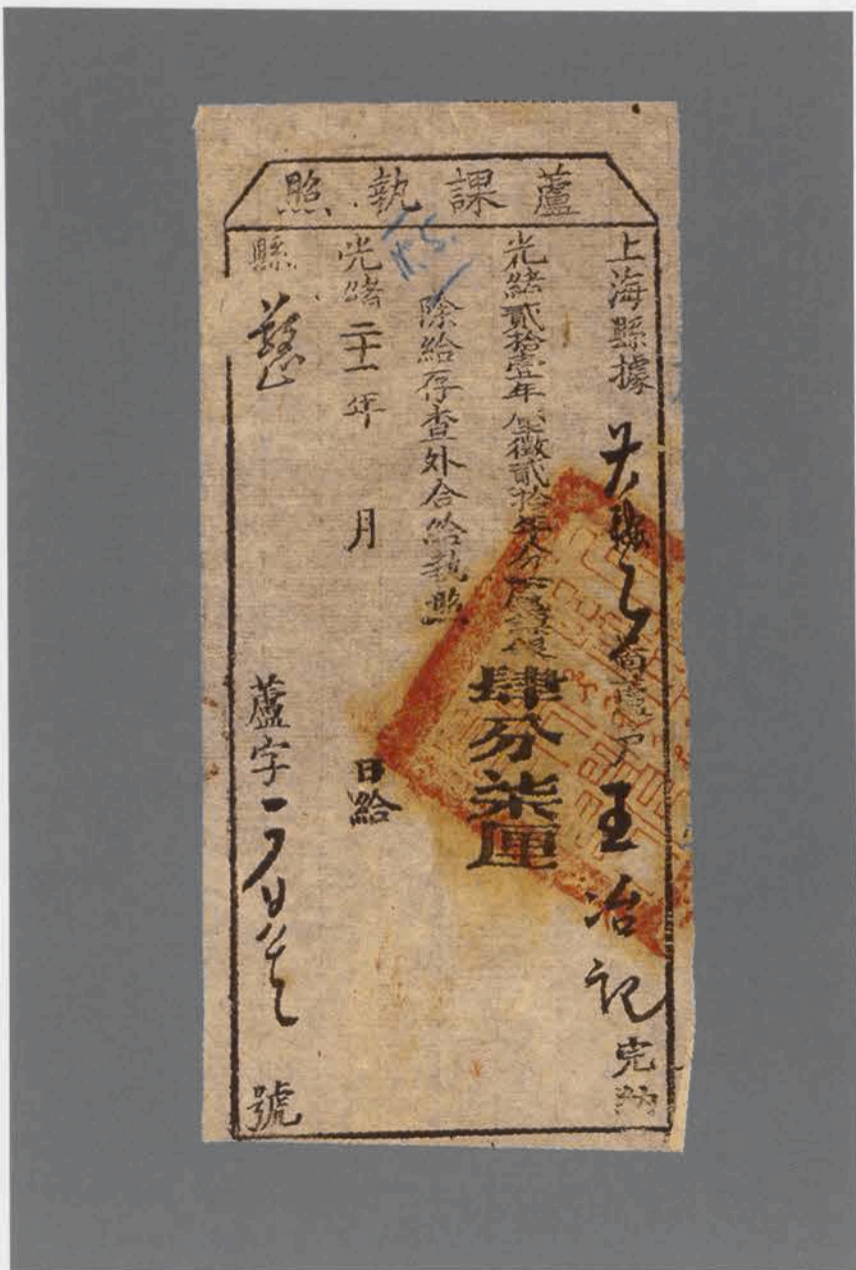 蘆課執照
上海縣據 圖蘆戶王冶記完納
光緒貳拾壹年座徵貳拾年分蘆課銀肆分柒厘
除給存查外合給執照
光緒二十一年 月 日給
縣
蘆字 號